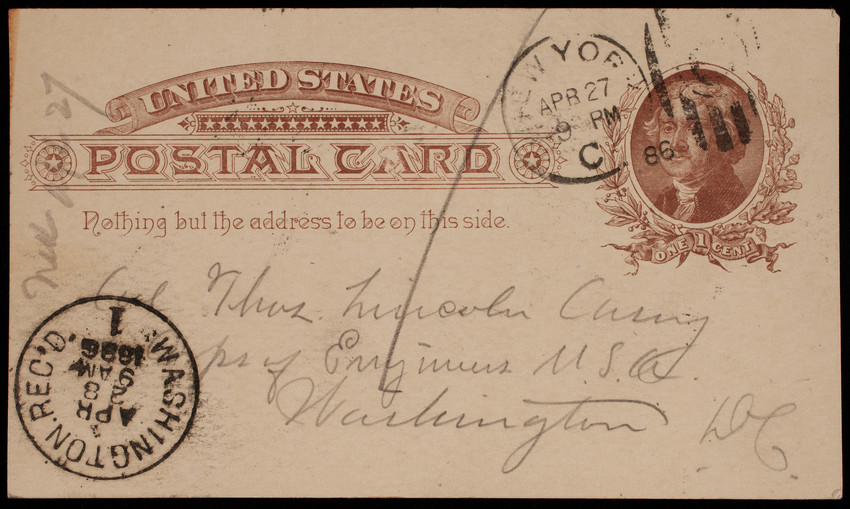 UNITED STATES
POSTAL CARD
Nothing but the address to be on this side.
ONE 1 CENT
NEW YORK
APR 27
9 PM
86
C
Col Thos. Lincoln Casey
Corps of Engineers U.S.A.
Washington
D.C.
WASHINGTON. REC'D.
APR
28
AM
1886
1
27